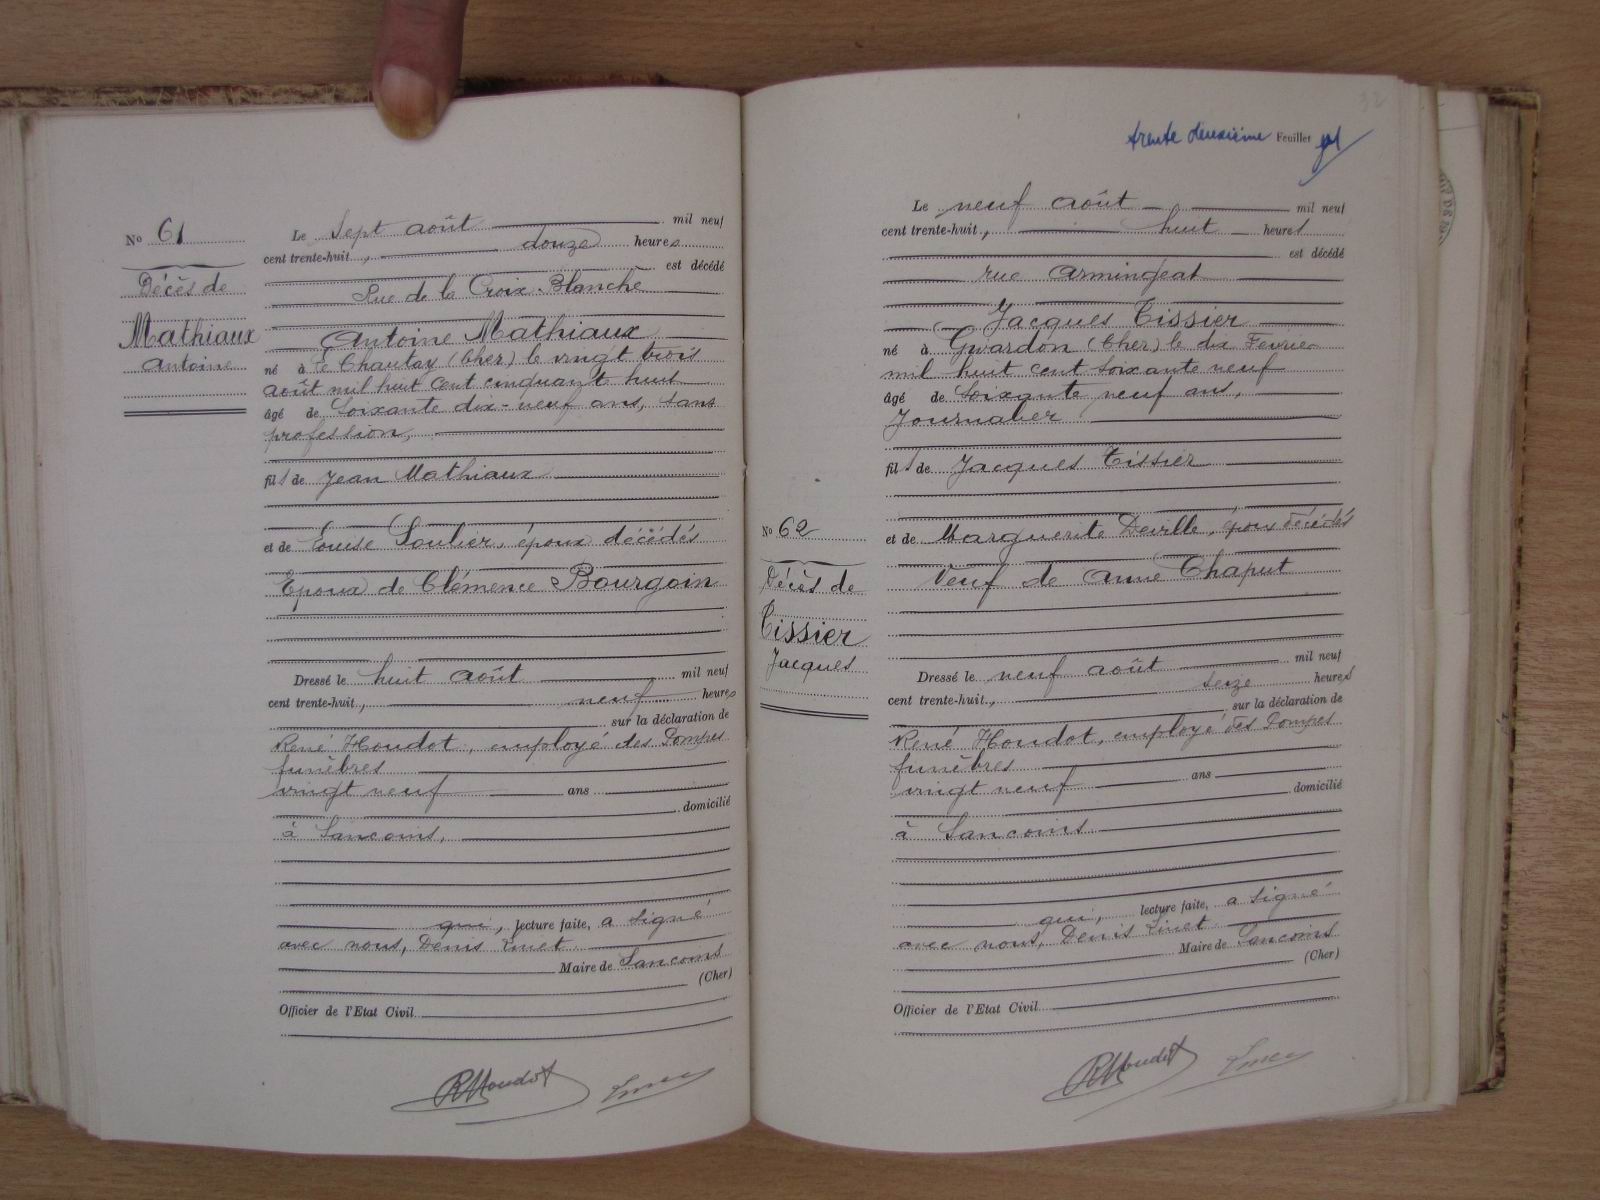 No 61
Décès de
Mathiaux
Antoine
Le sept août mil neuf
cent trente-huit, douze heures
est décédé
Rue de la Croix-Blanche
Antoine Mathiaux
né à Le Chautay (Cher) le vingt trois
août mil huit cent cinquante huit
âgé de soixante dix-neuf ans, sans
profession,
fils de Jean Mathiaux
et de Louise Soulier, époux décédés
Epoux de Clémence Bourgoin
Dressé le huit août mil neuf
cent trente-huit, neuf heures
sur la déclaration de
René Houdot, employé des Pompes
funèbres
vingt neuf ans
domicilié
à Sancoins,
qui, lecture faite, a signé
avec nous, Denis
Maire de Sancoins
(Cher)
Officier de l'Etat Civil
RHoudot
32
trente deuxième Feuillet
No 62
Décès de
Tissier
Jacques
Le neuf août mil neuf
cent trente-huit, huit heures
est décédé
rue Armingeat
Jacques Tissier
né à (Cher) le dix Février
mil huit cent soixante neuf
âgé de soixante neuf ans,
Journalier
fils de Jacques Tissier
et de Marguerite Deville, époux décédés
Veuf de Anne Chaput
Dressé le neuf août mil neuf
cent trente-huit, seize heures
sur la déclaration de
René Houdot, employé des Pompes
funèbres
vingt neuf ans
domicilié
à Sancoins
qui, lecture faite, a signé
avec nous, Denis
Maire de Sancoins
(Cher)
Officier de l'Etat Civil
RHoudot